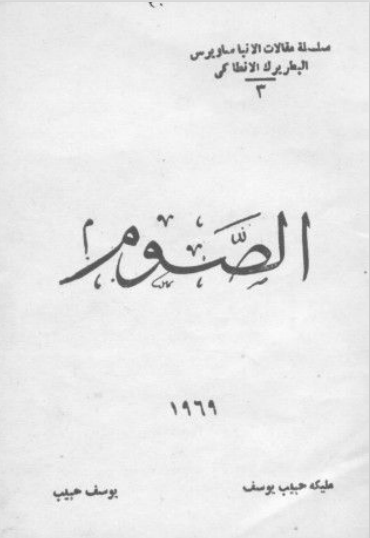 سلسلة مقالات الانبا ساويرس
البطريرك الانطاكي
٣
الصَّوم
١٩٦٩
مليكه حبيب يوسف
يوسف حبيب